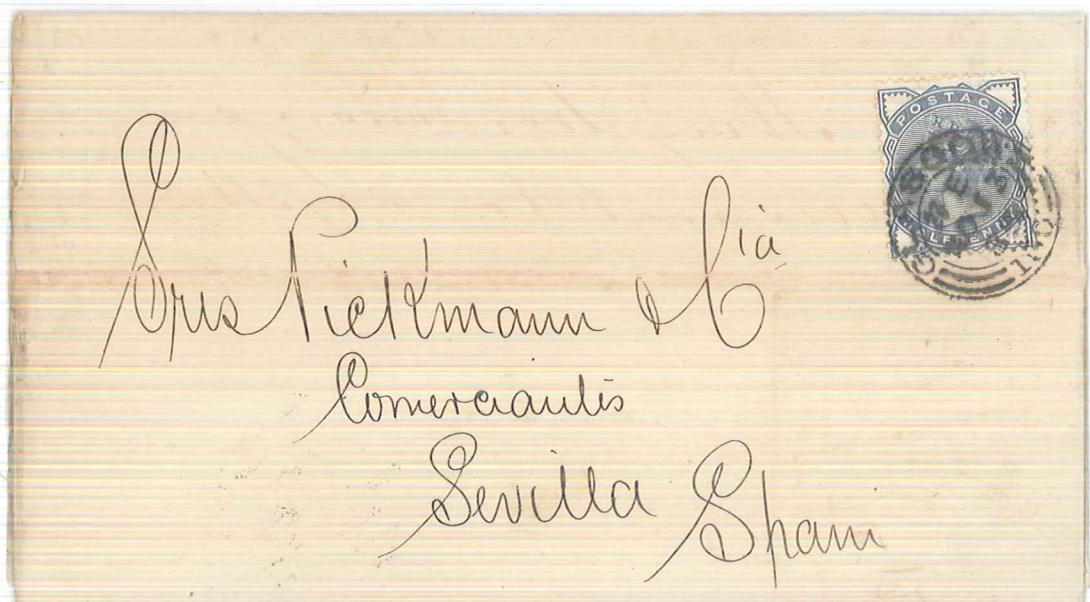 POSTAGE
HALFPENNY
GLASGOW
Sres Pickmann & Cia
Comerciantes
Sevilla Spain